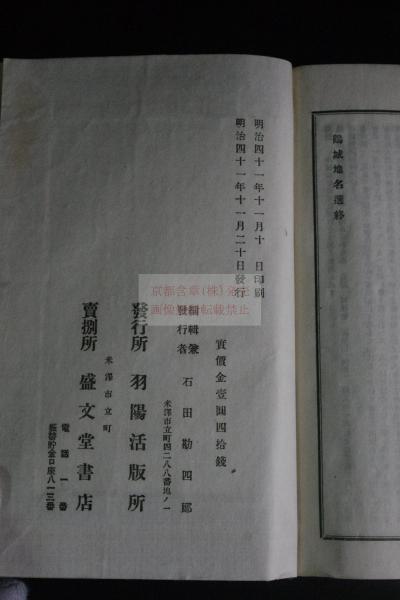 鶴城地名選終
明治四十一年十一月十 日印刷
明治四十一年十一月二十日發行
實價金壹圓四拾錢
編輯兼
發行者 石田勘四郎
米澤市立町四二八八番地ノ一
發行所 羽陽活版所
米澤市立町
賣捌所 盛文堂書店
電話一番
振替貯金口座八一三番
京都含章(株)発売
画像無断転載禁止